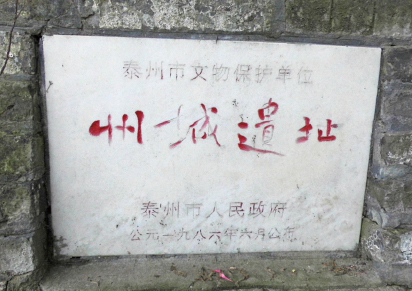 泰州市文物保护单位
州城遺址
泰州市人民政府
公元一九八六年六月公布